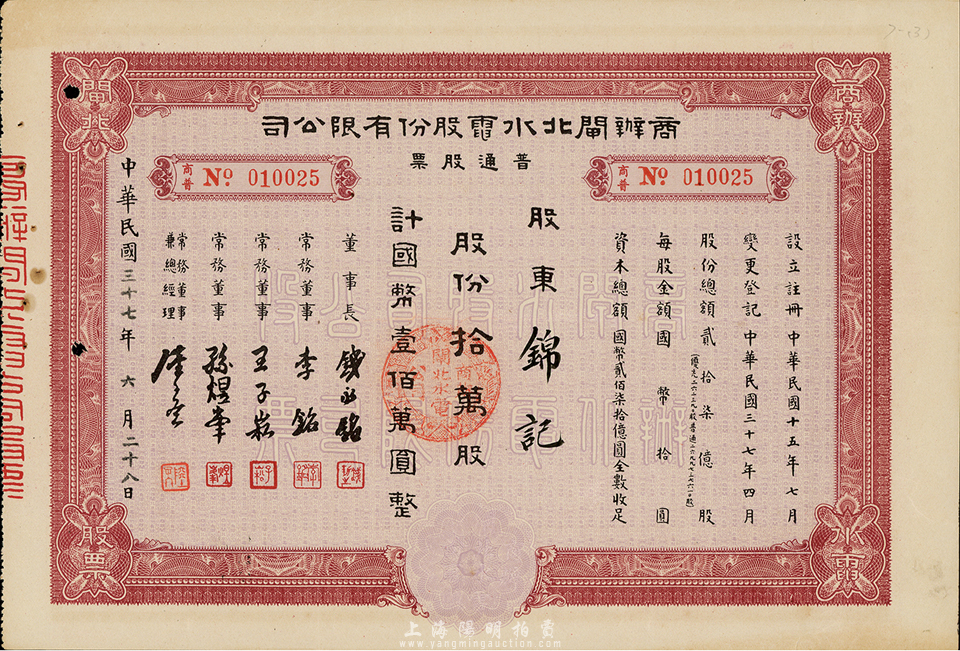 商辦閘北水電股份有限公司
普通股票
商普 No 010025
商普 No 010025
設立註冊 中華民國十五年七月
變更登記 中華民國三十七年四月
股份總額 貳拾柒億股
每股金額 國幣拾圓
資本總額 國幣貳佰柒拾億圓全數收足
股東 錦記
股份拾萬股
計國幣壹佰萬圓整
董事長
常務董事 李銘
常務董事 王子崧
常務董事 孫煜峯
常務董事兼總經理
中華民國三十七年六月二十八日
商辦
閘北
水電
股票
上海陽明拍賣
www.yangmingauction.com
7-(3)